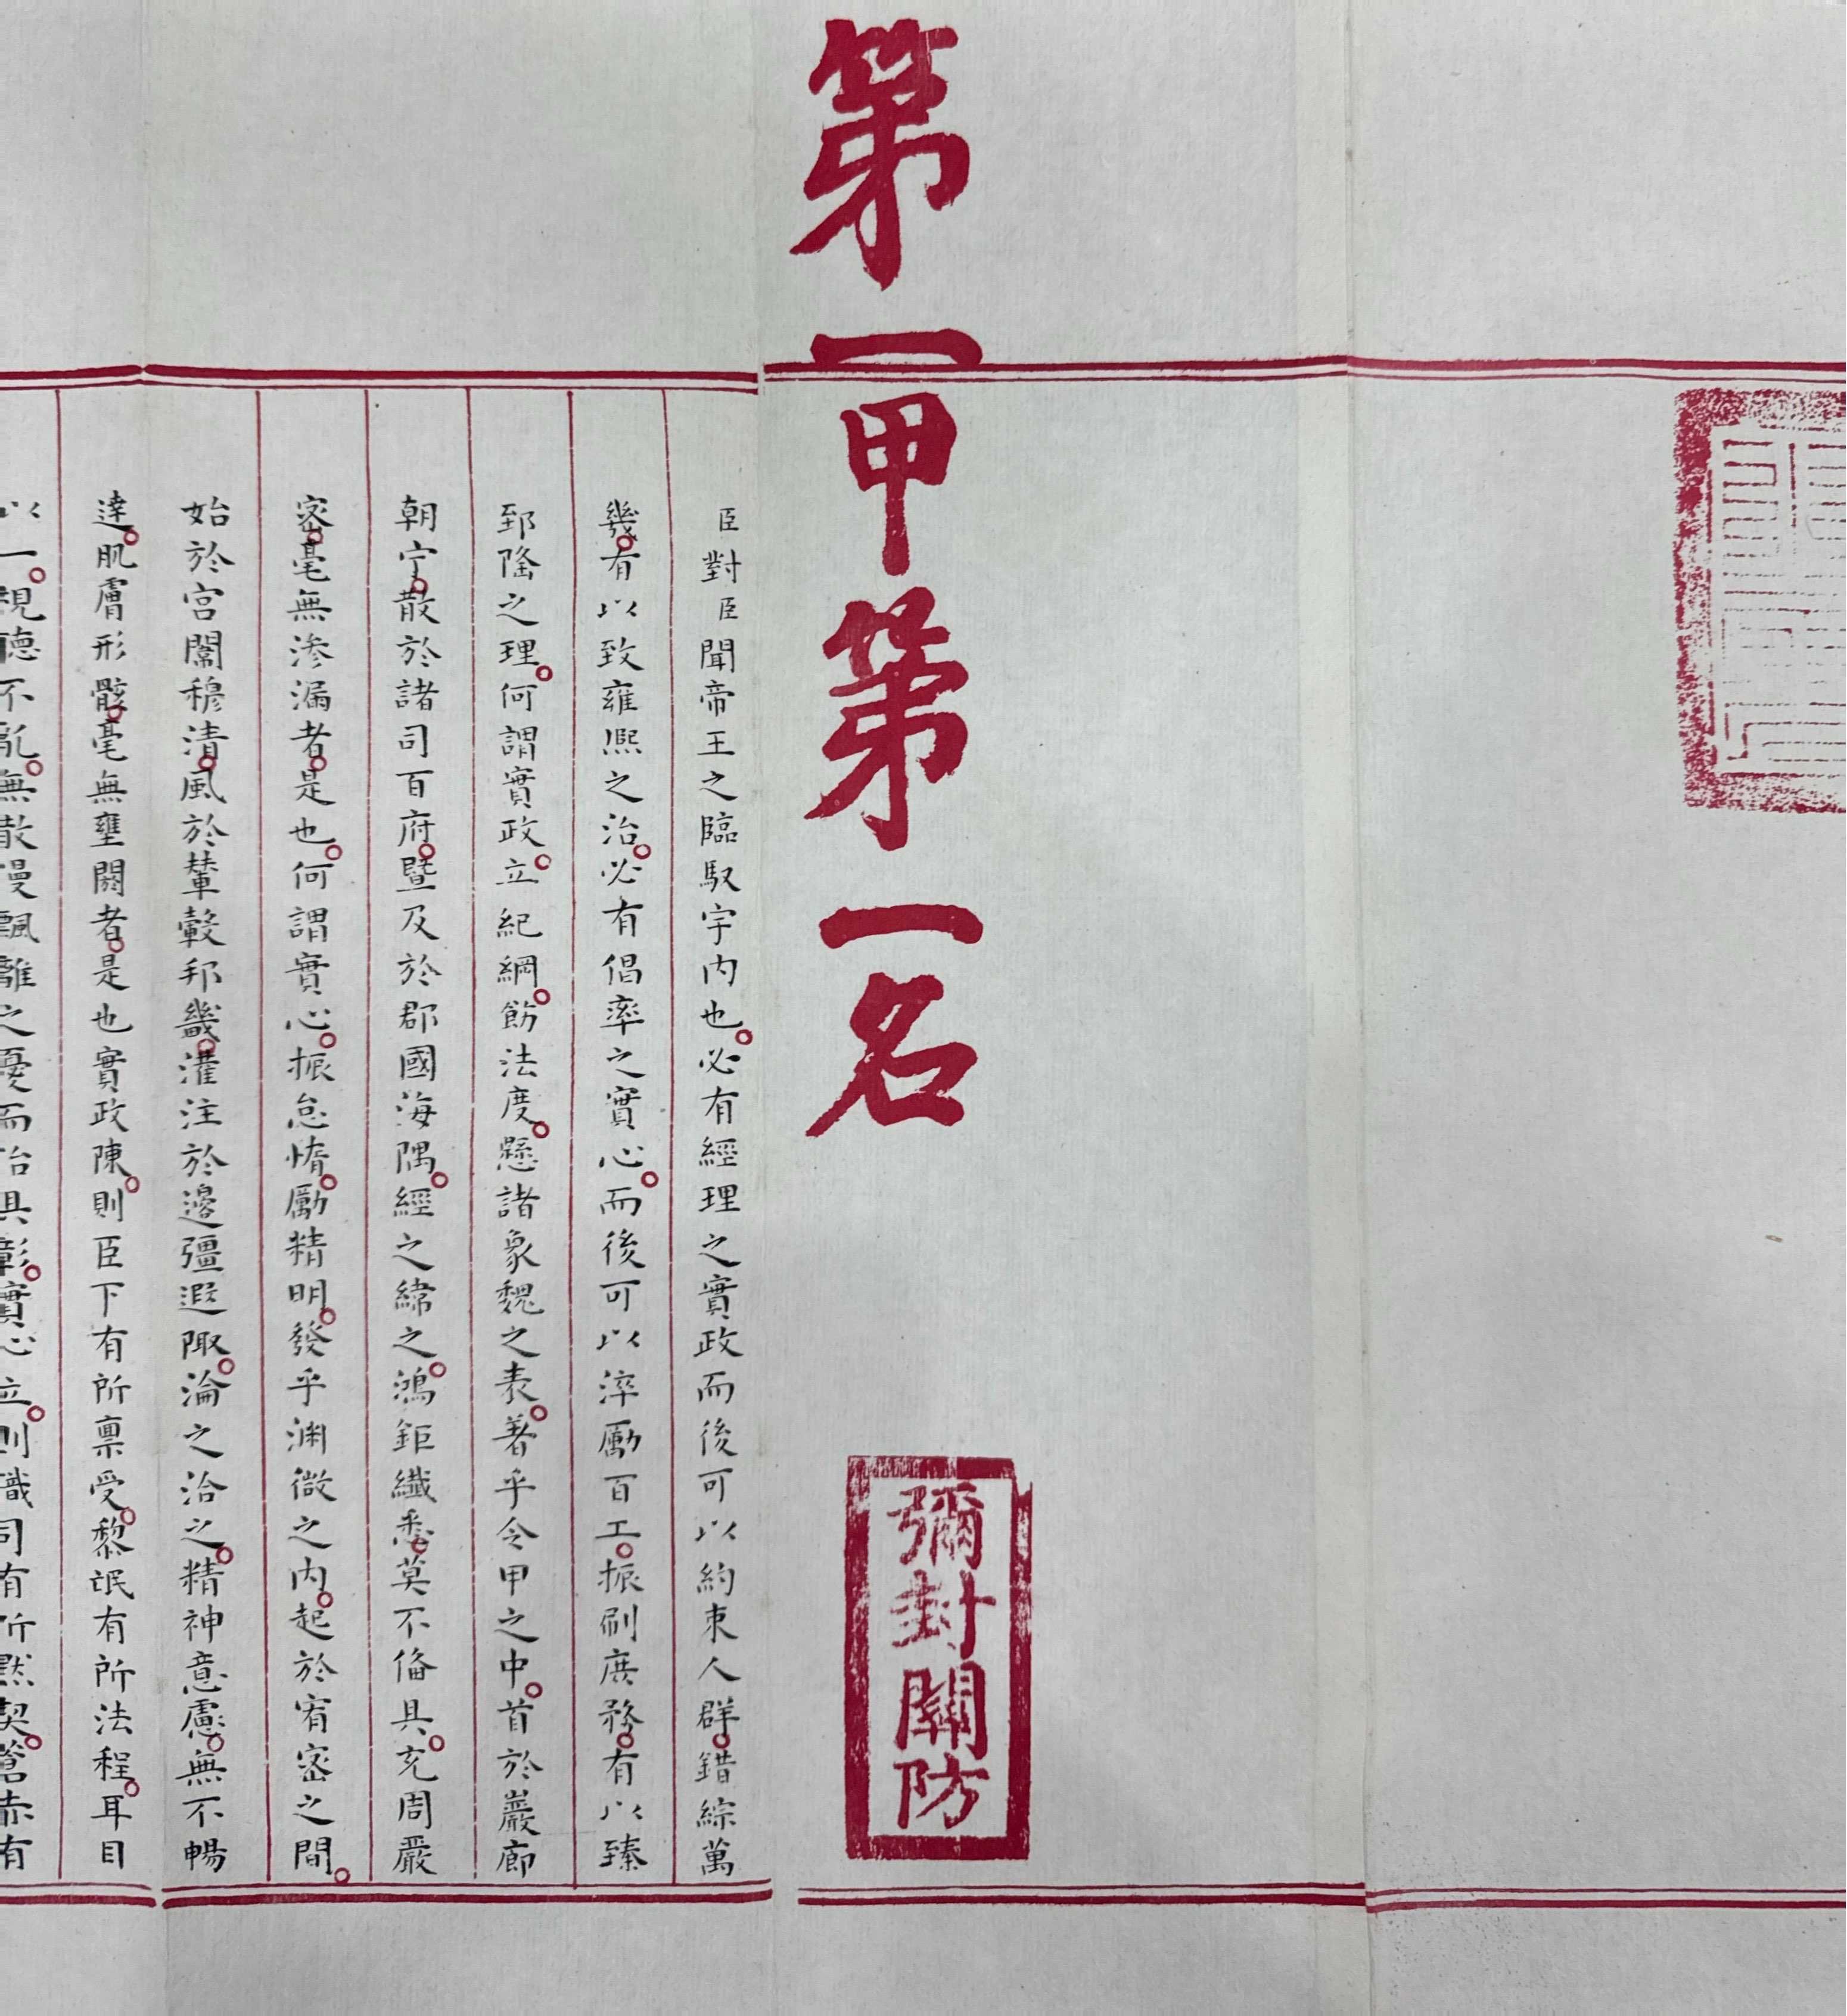 第一甲第一名
彌封關防
臣對臣聞帝王之臨馭宇内也必有經理之實政而後可以約束人群錯綜萬
幾有以致雍熙之治必有倡率之實心而後可以淬勵百工振刷庶務有以臻
郅隆之理何謂實政立紀綱飭法度懸諸象魏之表著乎令甲之中首於巖廊
朝宁散於諸司百府暨及於郡國海隅經之緯之鴻鉅纖悉莫不俻具充周嚴
密毫無渗漏者是也何謂實心振怠惰勵精明發乎渊微之内起於宥密之間
始於宫闈穆清風於輦轂邦畿灌注於邊疆遐陬淪之洽之精神意慮無不暢
達肌膚形骸毫無壅閼者是也實政陳則臣下有所禀受黎氓有所法程耳目
以一視聴不亂無散漫飄離之憂而治具彰實心立則職司有所默契蒼赤有